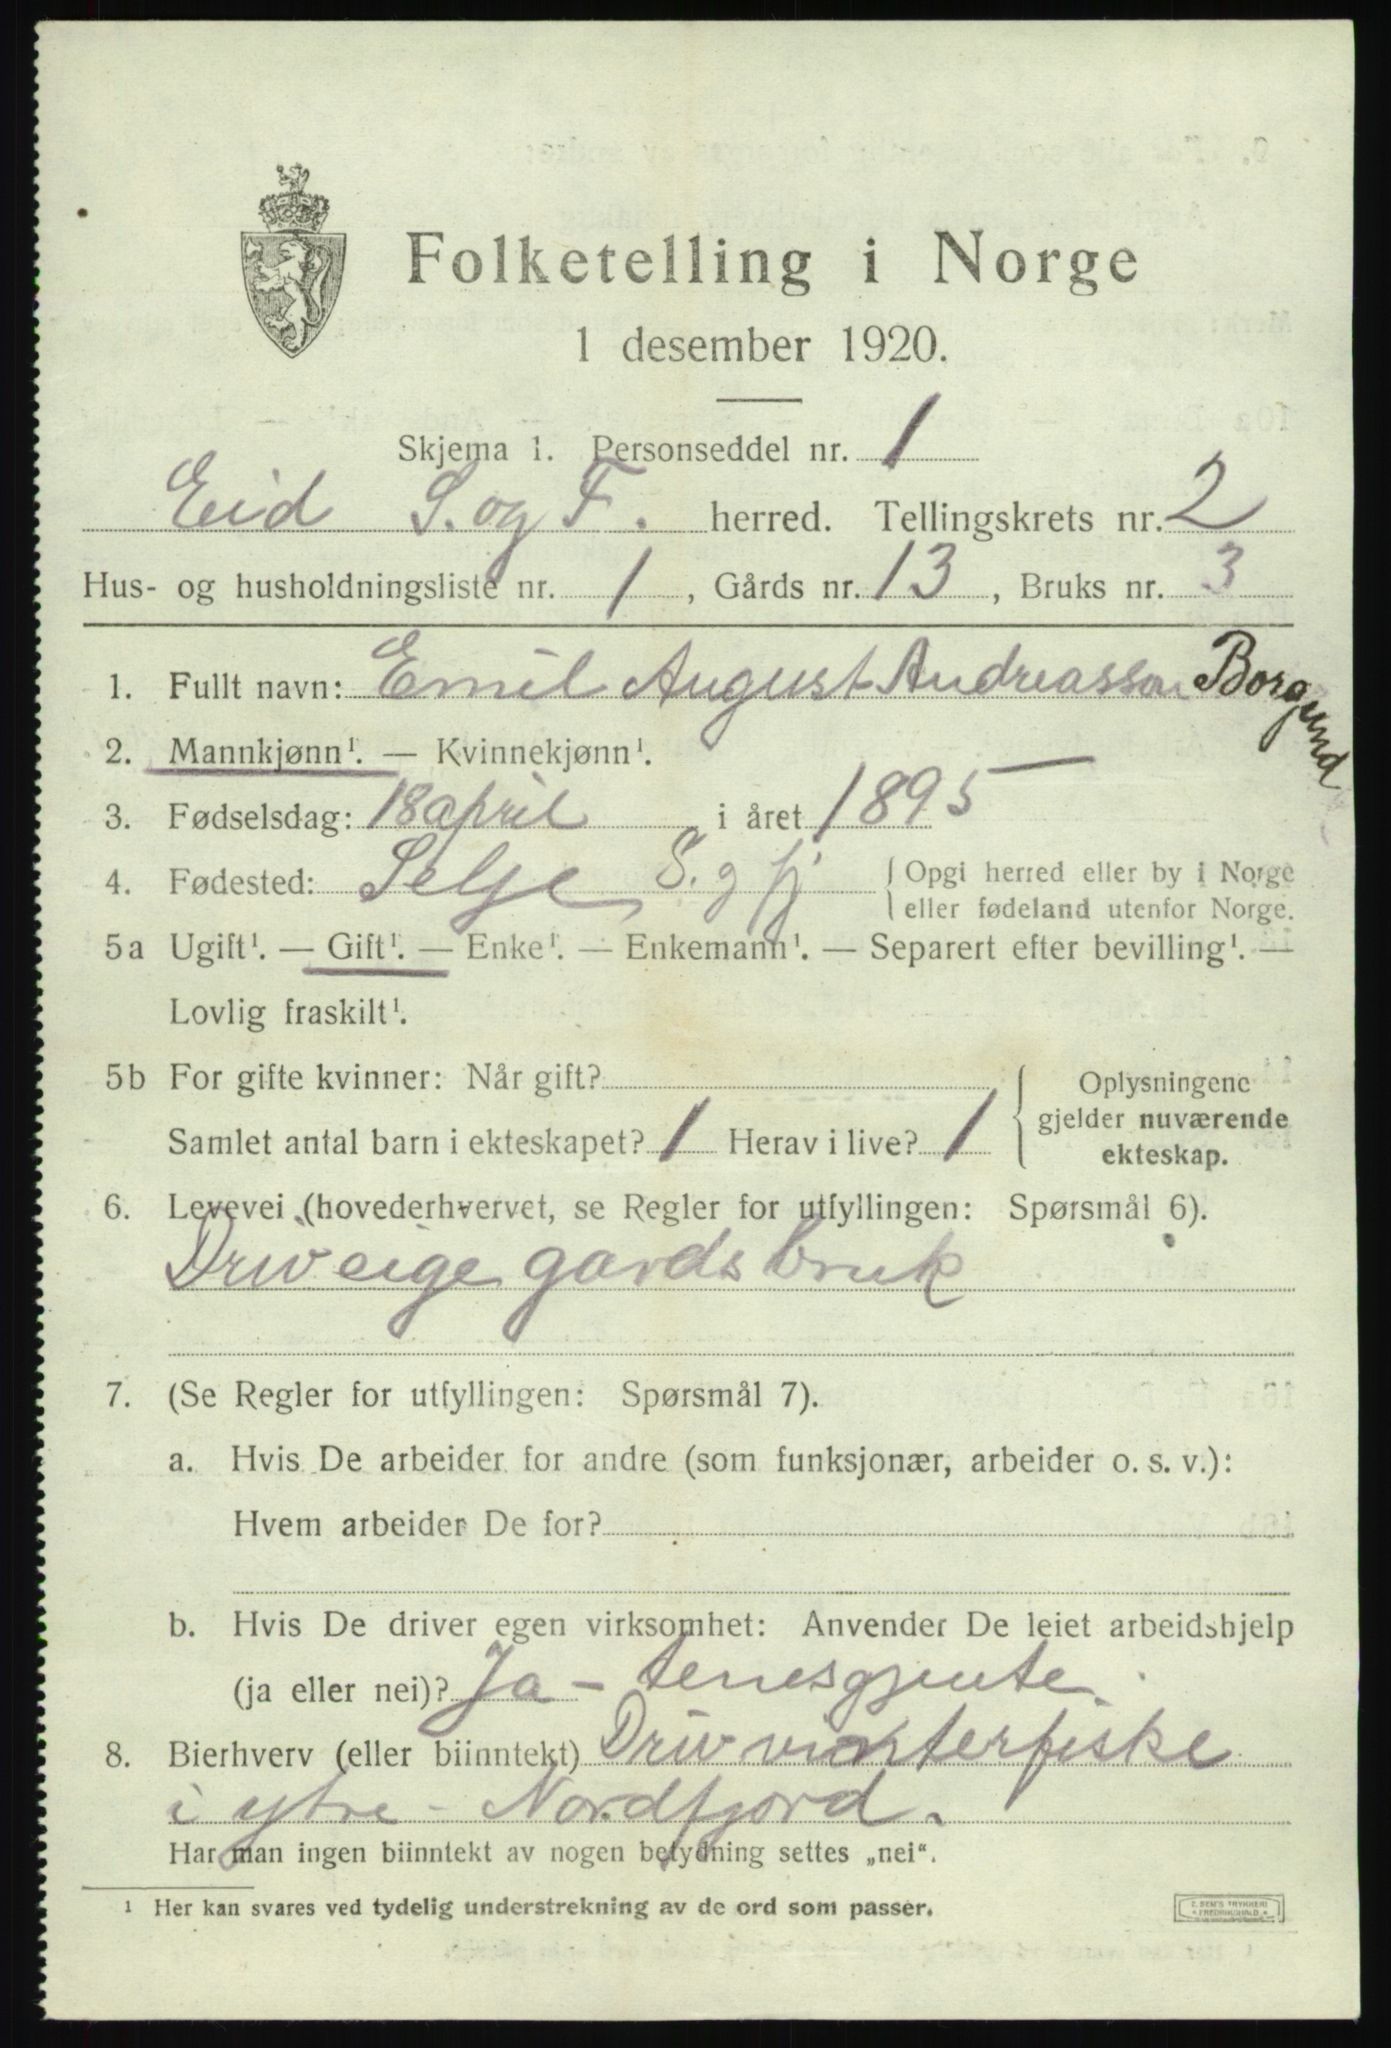 Folketelling i Norge
1 desember 1920.
Skjema 1. Personseddel nr. 1
Eid S. og F. herred. Tellingskrets nr. 2
Hus- og husholdningsliste nr. 1, Gårds nr. 13, Bruks nr. 3
1. Fullt navn: Emil August Andreasson Borgund
2. Mannkjønn¹. — Kvinnekjønn¹.
3. Fødselsdag: 18 april i året 1895
4. Fødested: Selje S. g fj { Opgi herred eller by i Norge
eller fødeland utenfor Norge.
5a Ugift¹. — Gift¹. — Enke¹. — Enkemann¹. — Separert efter bevilling¹. —
Lovlig fraskilt¹.
5b For gifte kvinner: Når gift? { Oplysningene
gjelder nuværende
Samlet antal barn i ekteskapet? 1 Herav i live? 1
ekteskap.
6. Levevei (hovederhvervet, se Regler for utfyllingen: Spørsmål 6).
Driv eige gardsbruk
7. (Se Regler for utfyllingen: Spørsmål 7).
a. Hvis De arbeider for andre (som funksjonær, arbeider o. s. v.):
Hvem arbeider De for?
b. Hvis De driver egen virksomhet: Anvender De leiet arbeidshjelp
(ja eller nei)? Ja - tenesgjente.
8. Bierhverv (eller biinntekt) Driv vinterfiske
i ytre - Nordfjord.
Har man ingen biinntekt av nogen betydning settes „nei“.
¹ Her kan svares ved tydelig understrekning av de ord som passer.
E. SEM'S TRYKKERI
FREDRIKSHALD